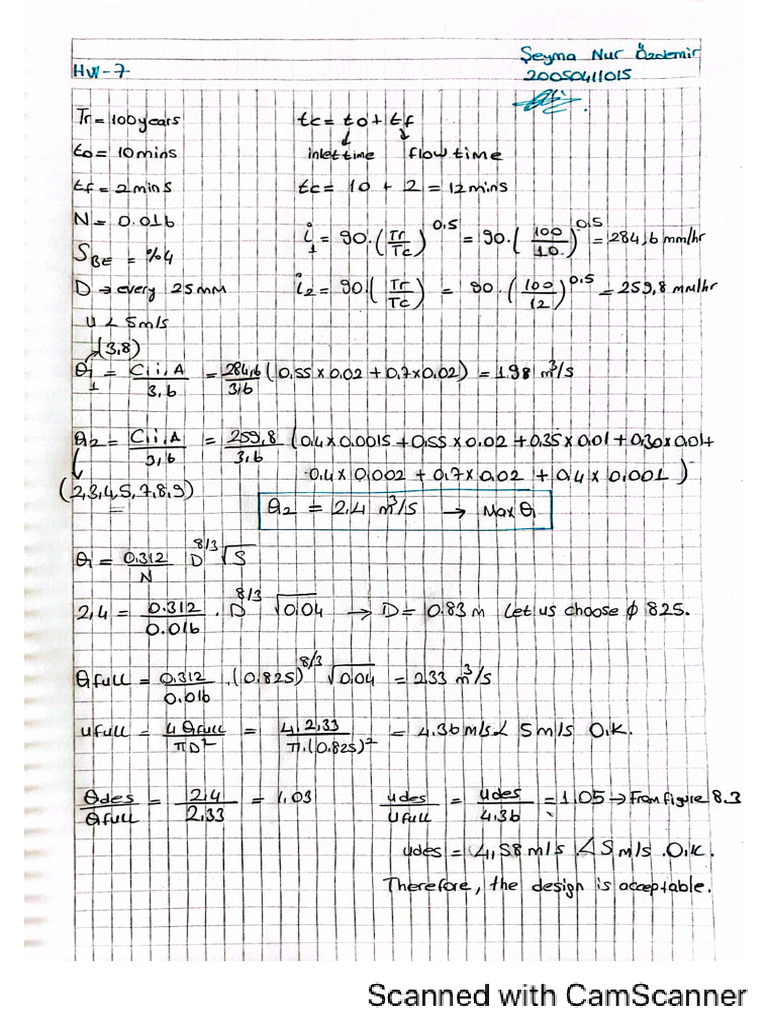 HW-7
Şeyma Nur Özdemir
20050411015
Tr = 100 years
to = 10 mins
tf = 2 mins
N = 0.016
S_BE = %4
D → every 25 mm
u < 5 m/s
tc = to + tf
inlet time flow time
tc = 10 + 2 = 12 mins
i₁ = 90.(Tr/Tc)^0.5 = 90.(100/10.)^0.5 = 284,6 mm/hr
i₂ = 90.(Tr/Tc) = 90.(100/12)^0.5 = 259,8 mm/hr
(3,8)
Q₁ = C.i.A/3,6 = 284,6/3,6 (0,55 x 0.02 + 0,7 x 0,02) = 1.98 m³/s
Q₂ = C.i.A/3,6 = 259,8/3,6 (0,4 x 0.0015 + 0,55 x 0.02 + 0,35 x 0.01 + 0,30 x 0.01 +
0,4 x 0,002 + 0,7 x 0,02 + 0,4 x 0,001)
(2,3,4,5,7,8,9)
Q₂ = 2,4 m³/s → Max Q
Q = 0.312/N D^8/3 √S
2,4 = 0.312/0.016 . D^8/3 √0.04 → D = 0.83 m Let us choose ϕ 825.
Qfull = 0.312/0.016 .(0.825)^8/3 √0,04 = 2.33 m³/s
ufull = 4Qfull/πD² = 4.2,33/π.(0.825)² = 4.36 m/s < 5 m/s O.K.
Qdes/Qfull = 2.4/2.33 = 1,03
udes/ufull = udes/4.36 = 1.05 → From figure 8.3
udes = 4,58 m/s < 5 m/s .O.K.
Therefore, the design is acceptable.
Scanned with CamScanner